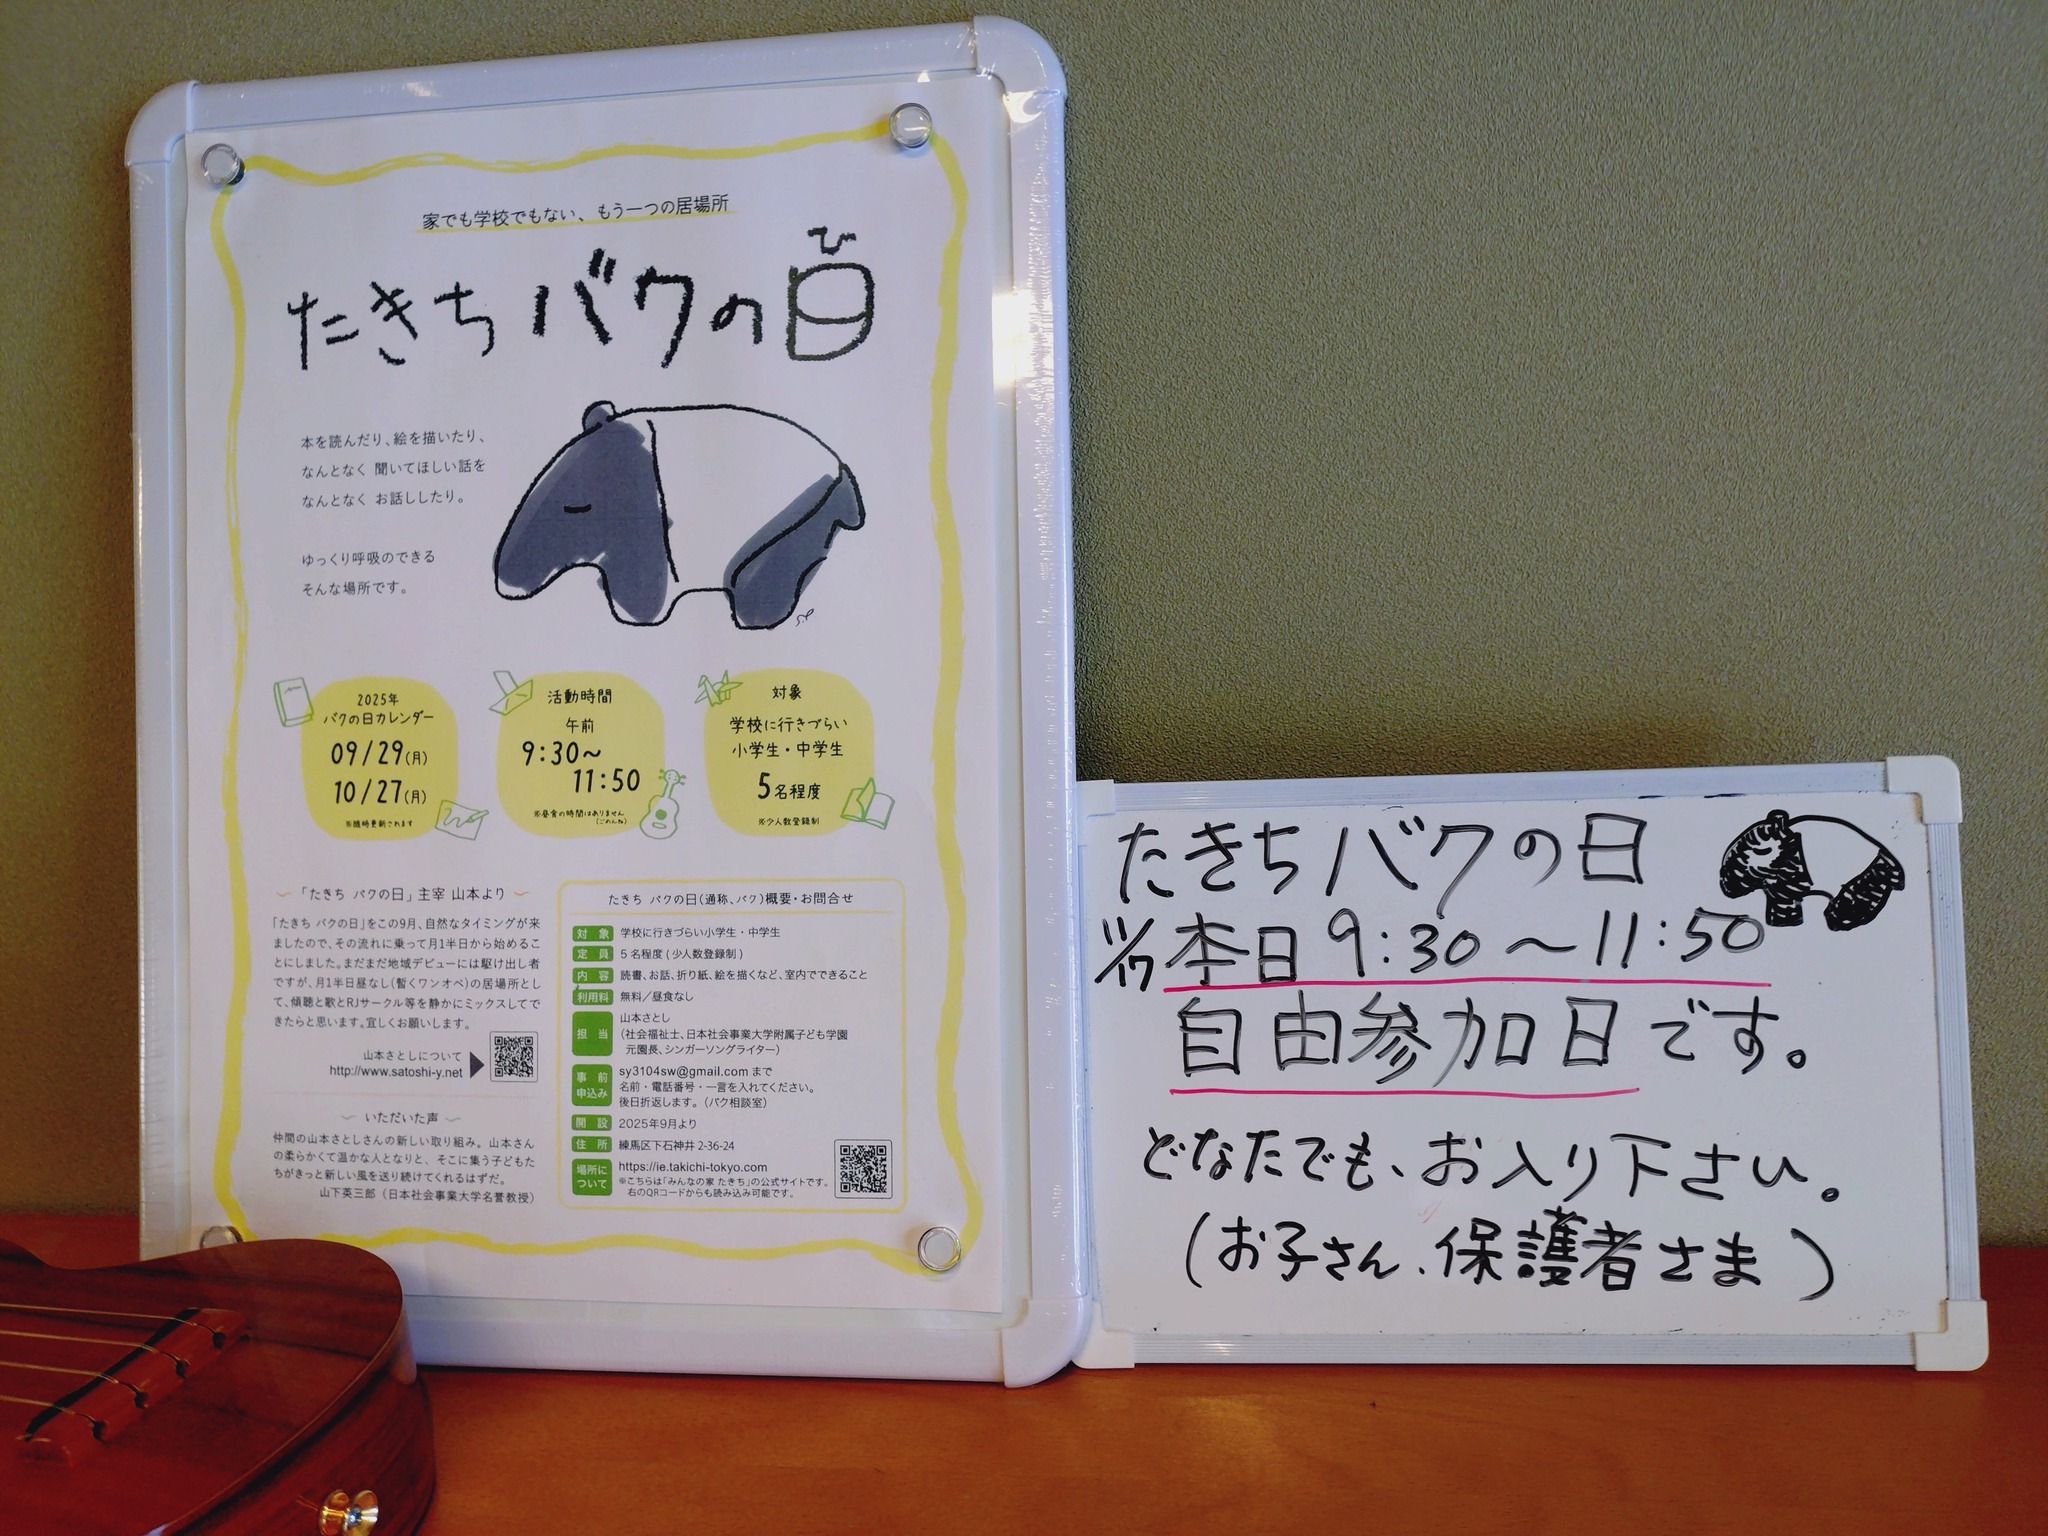 家でも学校でもない、もう一つの居場所
たきちバクの日
ひ
本を読んだり、絵を描いたり、
なんとなく 聞いてほしい話を
なんとなく お話ししたり。
ゆっくり呼吸のできる
そんな場所です。
2025年
バクの日カレンダー
09/29(月)
10/27(月)
※随時更新されます
活動時間
午前
9:30~
11:50
※昼食の時間はありません
(ごめんね)
対象
学校に行きづらい
小学生・中学生
5名程度
※少人数登録制
「たきち バクの日」主宰 山本より
「たきち バクの日」をこの9月、自然なタイミングが来
ましたので、その流れに乗って月1半日から始めるこ
とにしました。まだまだ地域デビューには駆け出し者
ですが、月1半日昼なし(暫くワンオペ)の居場所とし
て、傾聴と歌とRJサークル等を静かにミックスしてで
きたらと思います。宜しくお願いします。
山本さとしについて
http://www.satoshi-y.net
いただいた声
仲間の山本さとしさんの新しい取り組み。山本さん
の柔らかくて温かな人となりと、そこに集う子どもた
ちがきっと新しい風を送り続けてくれるはずだ。
山下英三郎（日本社会事業大学名誉教授）
たきち バクの日(通称、バク)概要・お問合せ
対象 学校に行きづらい小学生・中学生
定員 5名程度(少人数登録制)
内容 読書、お話、折り紙、絵を描くなど、室内でできること
利用料 無料／昼食なし
担当 山本さとし
（社会福祉士、日本社会事業大学附属子ども学園
元園長、シンガーソングライター）
事前申込み sy3104sw@gmail.com まで
名前・電話番号・一言を入れてください。
後日折返します。（バク相談室）
開設 2025年9月より
住所 練馬区下石神井 2-36-24
場所について https://ie.takichi-tokyo.com
※こちらは「みんなの家 たきち」の公式サイトです。
右のQRコードからも読み込み可能です。
たきちバクの日
11/17 本日 9:30～11:50
自由参加日です。
どなたでも、お入り下さい。
(お子さん、保護者さま)